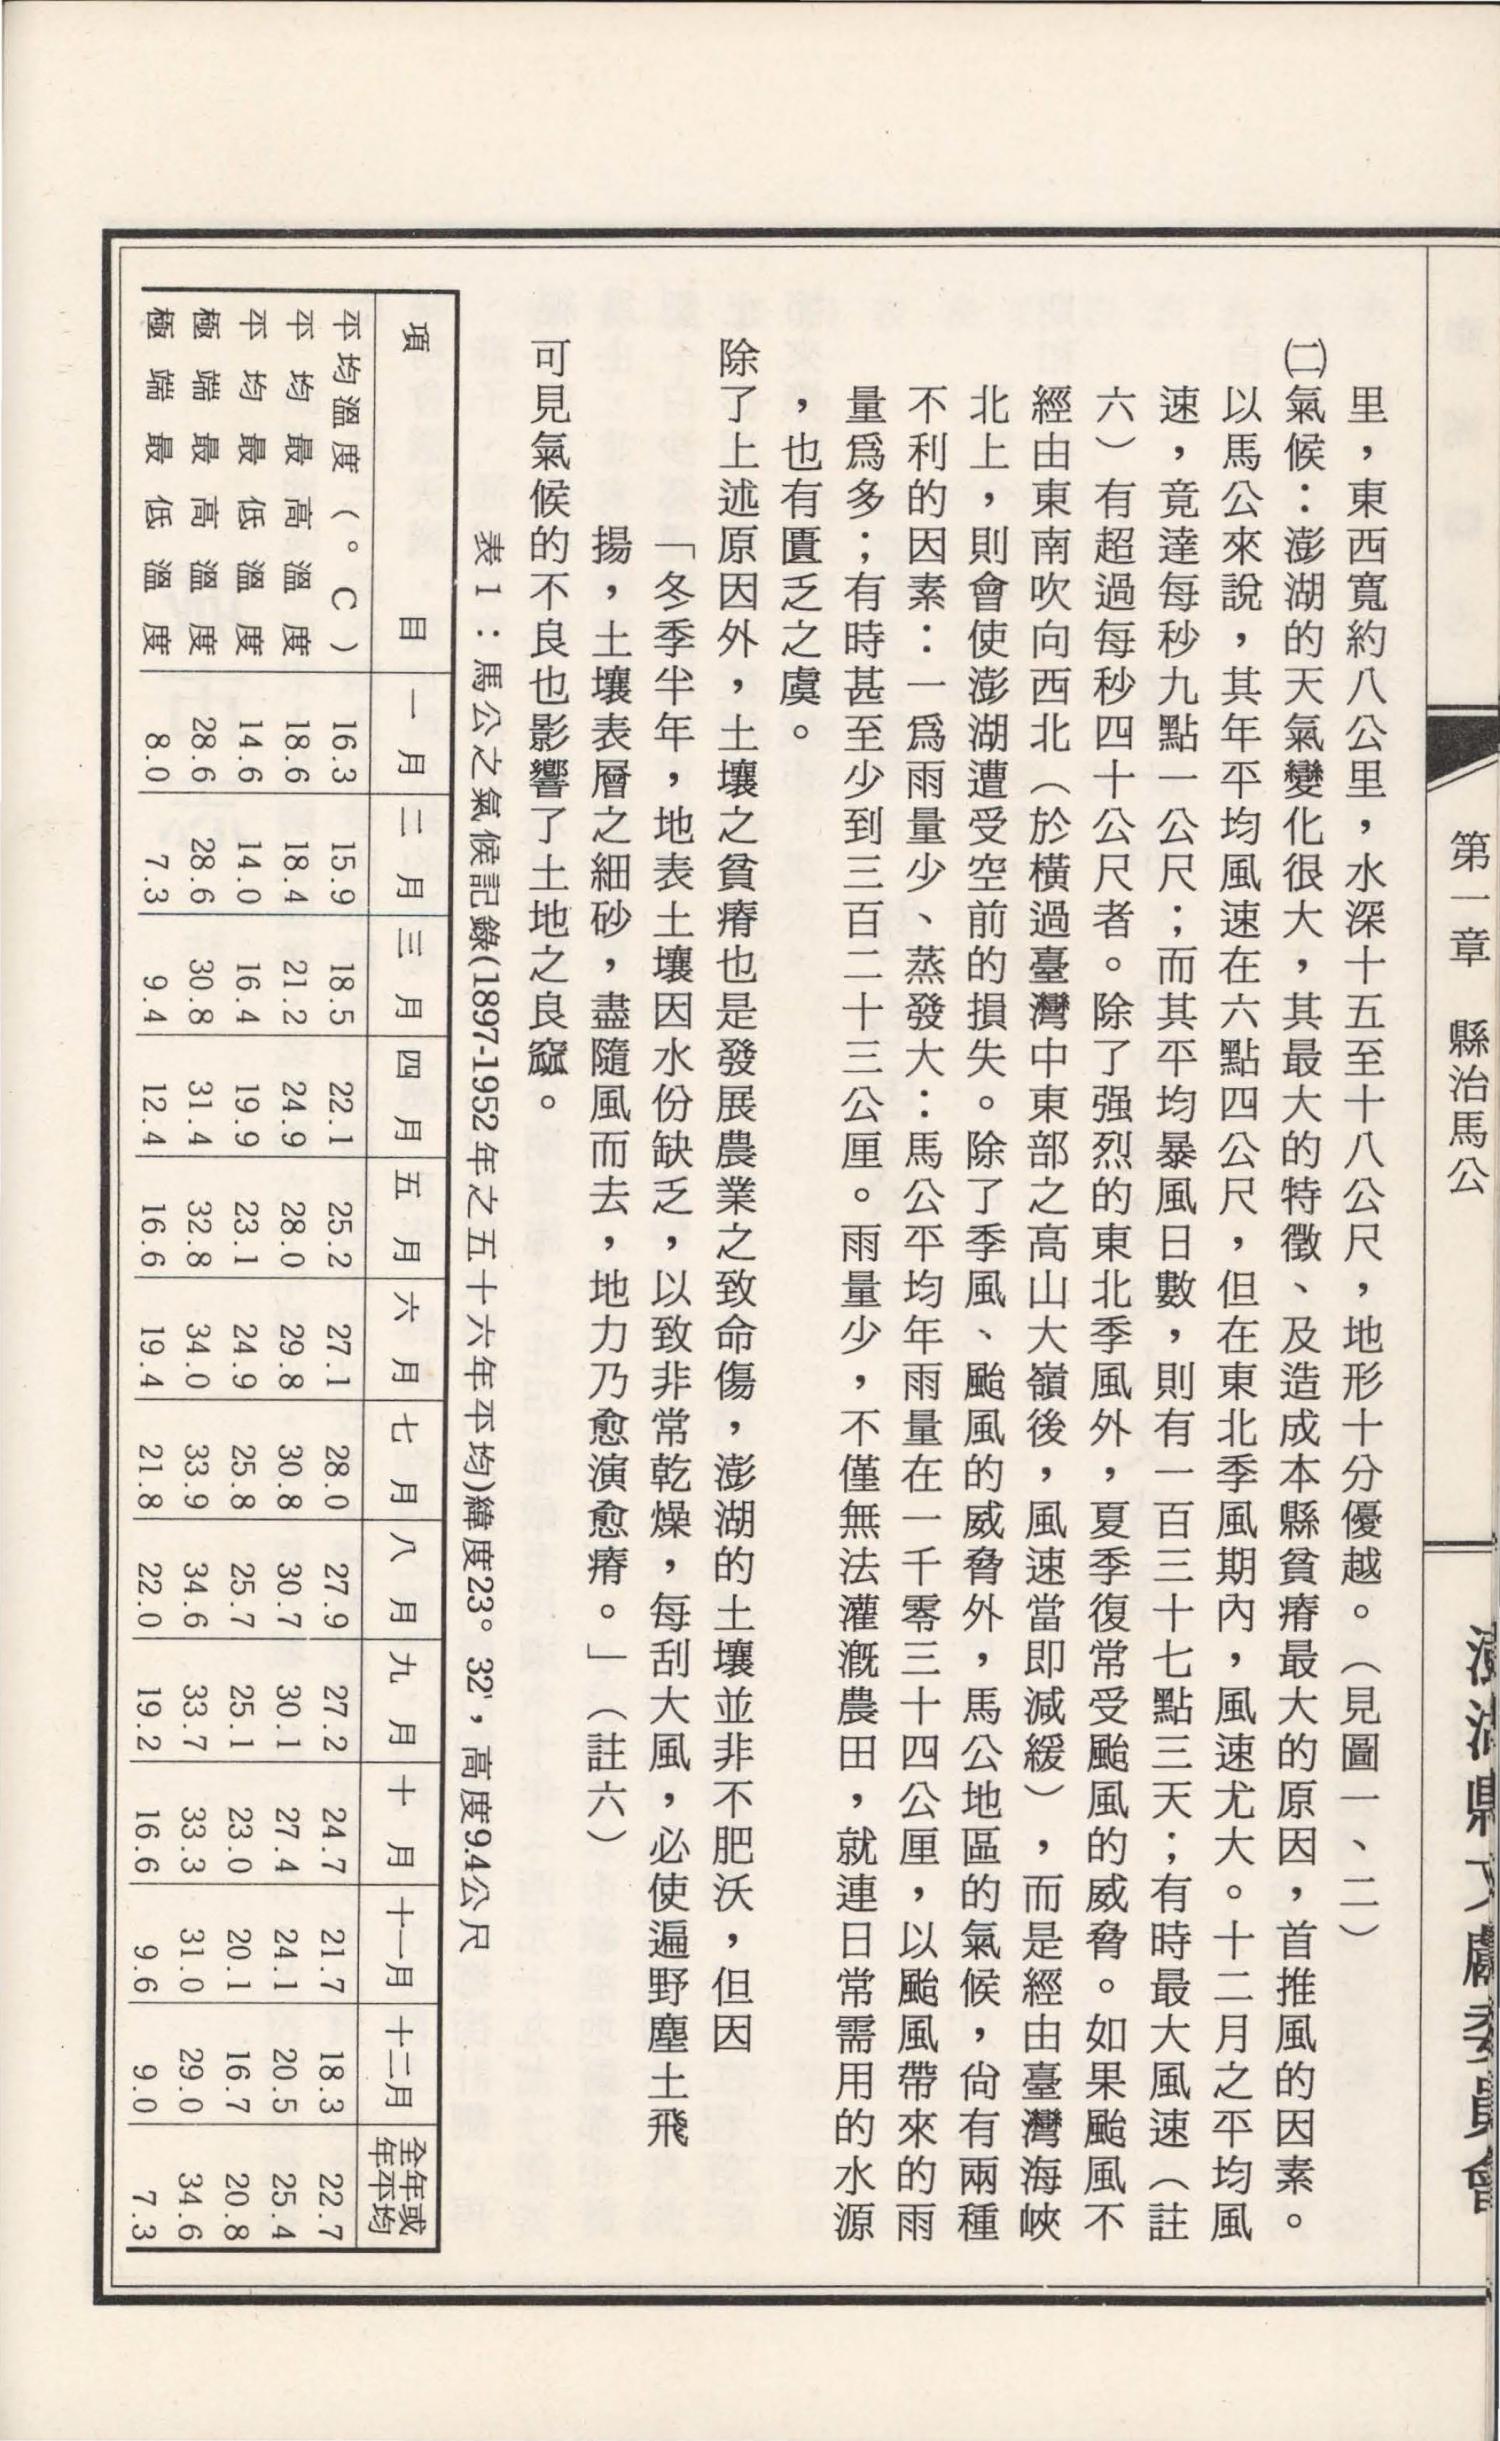 第一章　縣治馬公
澎湖縣文獻委員會
里，東西寬約八公里，水深十五至十八公尺，地形十分優越。（見圖一、二）
㈡氣候：澎湖的天氣變化很大，其最大的特徵、及造成本縣貧瘠最大的原因，首推風的因素。
以馬公來說，其年平均風速在六點四公尺，但在東北季風期內，風速尤大。十二月之平均風
速，竟達每秒九點一公尺；而其平均暴風日數，則有一百三十七點三天；有時最大風速（註
六）有超過每秒四十公尺者。除了强烈的東北季風外，夏季復常受颱風的威脅。如果颱風不
經由東南吹向西北（於橫過臺灣中東部之高山大嶺後，風速當即減緩），而是經由臺灣海峽
北上，則會使澎湖遭受空前的損失。除了季風、颱風的威脅外，馬公地區的氣候，尙有兩種
不利的因素：一爲雨量少、蒸發大：馬公平均年雨量在一千零三十四公厘，以颱風帶來的雨
量爲多；有時甚至少到三百二十三公厘。雨量少，不僅無法灌漑農田，就連日常需用的水源
，也有匱乏之虞。
除了上述原因外，土壤之貧瘠也是發展農業之致命傷，澎湖的土壤並非不肥沃，但因
「冬季半年，地表土壤因水份缺乏，以致非常乾燥，每刮大風，必使遍野塵土飛
揚，土壤表層之細砂，盡隨風而去，地力乃愈演愈瘠。」（註六）
可見氣候的不良也影響了土地之良窳。
表1：馬公之氣候記錄(1897-1952年之五十六年平均)緯度23° 32'，高度9.4公尺
項　目　一月　二月　三月　四月　五月　六月　七月　八月　九月　十月　十一月　十二月　全年或年平均
平均溫度(°C)　16.3　15.9　18.5　22.1　25.2　27.1　28.0　27.9　27.2　24.7　21.7　18.3　22.7
平均最高溫度　18.6　18.4　21.2　24.9　28.0　29.8　30.8　30.7　30.1　27.4　24.1　20.5　25.4
平均最低溫度　14.6　14.0　16.4　19.9　23.1　24.9　25.8　25.7　25.1　23.0　20.1　16.7　20.8
極端最高溫度　28.6　28.6　30.8　31.4　32.8　34.0　33.9　34.6　33.7　33.3　31.0　29.0　34.6
極端最低溫度　8.0　7.3　9.4　12.4　16.6　19.4　21.8　22.0　19.2　16.6　9.6　9.0　7.3